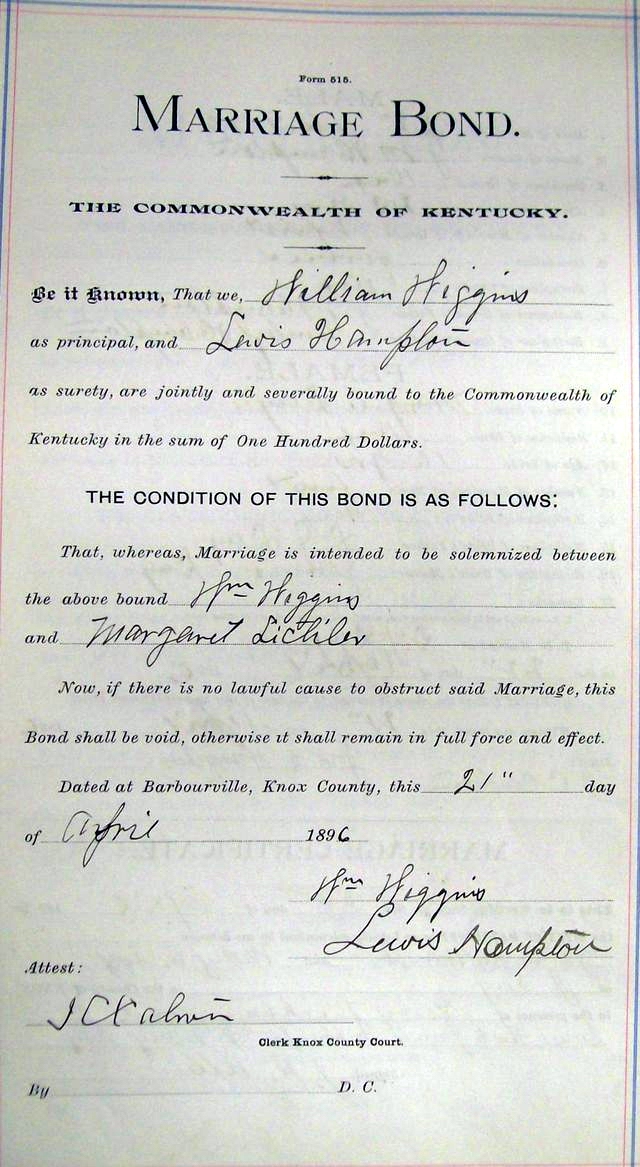 Form 515.
MARRIAGE BOND.
THE COMMONWEALTH OF KENTUCKY.
Be it Known, That we, William Wiggins
as principal, and Lewis Hampton
as surety, are jointly and severally bound to the Commonwealth of
Kentucky in the sum of One Hundred Dollars.
THE CONDITION OF THIS BOND IS AS FOLLOWS:
That, whereas, Marriage is intended to be solemnized between
the above bound Wm Wiggins
and Margaret
Now, if there is no lawful cause to obstruct said Marriage, this
Bond shall be void, otherwise it shall remain in full force and effect.
Dated at Barbourville, Knox County, this 21" day
of April 1896
Wm Wiggins
Lewis Hampton
Attest:
Clerk Knox County Court.
By D. C.